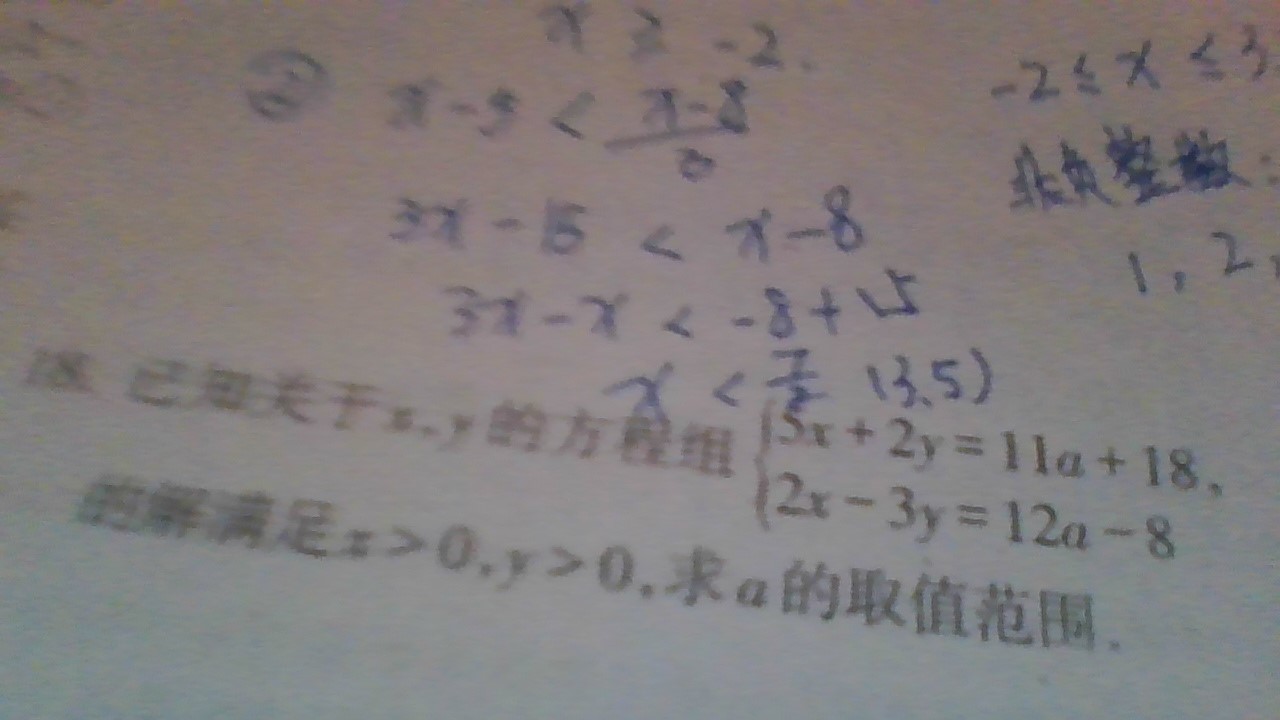 x ≥ -2.
② x-5 < \frac{x-8}{3}
3x-15 < x-8
3x-x < -8+15
x < \frac{7}{2} (3.5)
-2≤x≤3.
非负整数:
1, 2,
18. 已知关于x,y的方程组{5x+2y=11a+18,
2x-3y=12a-8
的解满足x>0,y>0,求a的取值范围.